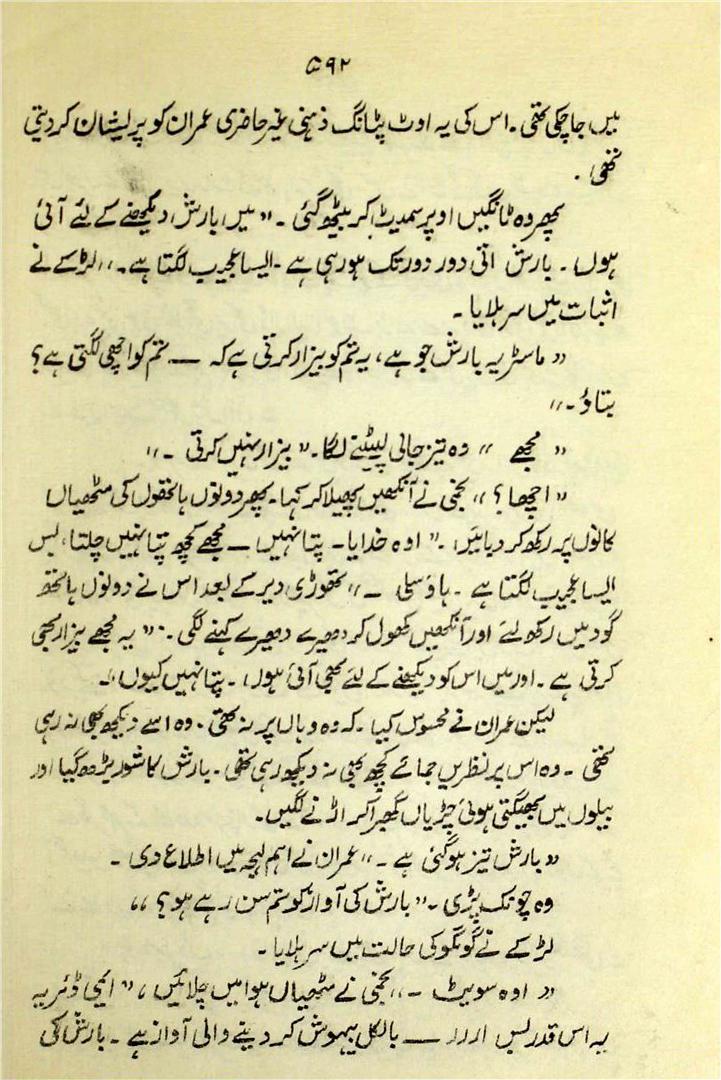 ۵۹۲
میں جا چکی تھی ۔ اس کی یہ اوٹ پٹانگ ذہنی غیر حاضری عمران کو پریشان کر دیتی
تھی ۔
پھر وہ ٹانگیں اوپر سمیٹ کر بیٹھ گئی ۔ ’’ میں بارش دیکھنے کے لئے آئی
ہوں ۔ بارش اتی دور دور تک ہو رہی ہے ۔ ایسا عجیب لگتا ہے ۔‘‘ لڑکے نے
اثبات میں سر ہلایا ۔
’’ ماسٹر یہ بارش جو ہے ، یہ تم کو بیزار کرتی ہے کہ —— تم کو اچھی لگتی ہے ؟
بتاؤ ۔‘‘
’’ مجھے ‘‘ وہ تیز جالی لپیٹنے لگا ۔ ’’ بیزار نہیں کرتی ۔‘‘
’’ اچھا ؟ ‘‘ نجمی نے آنکھیں پھیلا کر کہا ۔ پھر دونوں ہاتھوں کی مٹھیاں
کانوں پر رکھ کر دبائیں ۔ ’’ اوہ خدایا ۔ پتا نہیں — مجھے کچھ پتا نہیں چلتا ، بس
ایسا عجیب لگتا ہے ۔ ہاؤ سلی ۔‘‘ تھوڑی دیر کے بعد اس نے دونوں ہاتھ
گود میں رکھ لئے اور آنکھیں کھول کر دھیرے دھیرے کہنے لگی ۔ ’’ یہ مجھے بیزار بھی
کرتی ہے ۔ اور میں اس کو دیکھنے کے لئے بھی آئی ہوں ۔ پتا نہیں کیوں ‘‘ ۔
لیکن عمران نے محسوس کیا ۔ کہ وہ وہاں پر نہ تھی ۔ وہ اسے دیکھ بھی نہ رہی
تھی ۔ وہ اس پر نظریں جمائے کچھ بھی نہ دیکھ رہی تھی ۔ بارش کا شور بڑھ گیا اور
بیلوں میں بھیگتی ہوئی چڑیاں گھبرا کر اڑنے لگیں ۔
’’ بارش تیز ہو گئی ہے ۔‘‘ عمران نے اہم لہجہ میں اطلاع دی ۔
وہ چونک پڑی ۔ ’’ بارش کی آواز کو تم سن رہے ہو ؟ ‘‘
لڑکے نے گومگو کی حالت میں سر ہلایا ۔
’’ اوہ سویٹ ۔‘‘ نجمی نے مٹھیاں ہوا میں چلائیں ، ’’ ایمی ڈئر یہ
یہ اس قدر بس اررر —— بالکل بیہوش کر دینے والی آواز ہے ۔ بارش کی